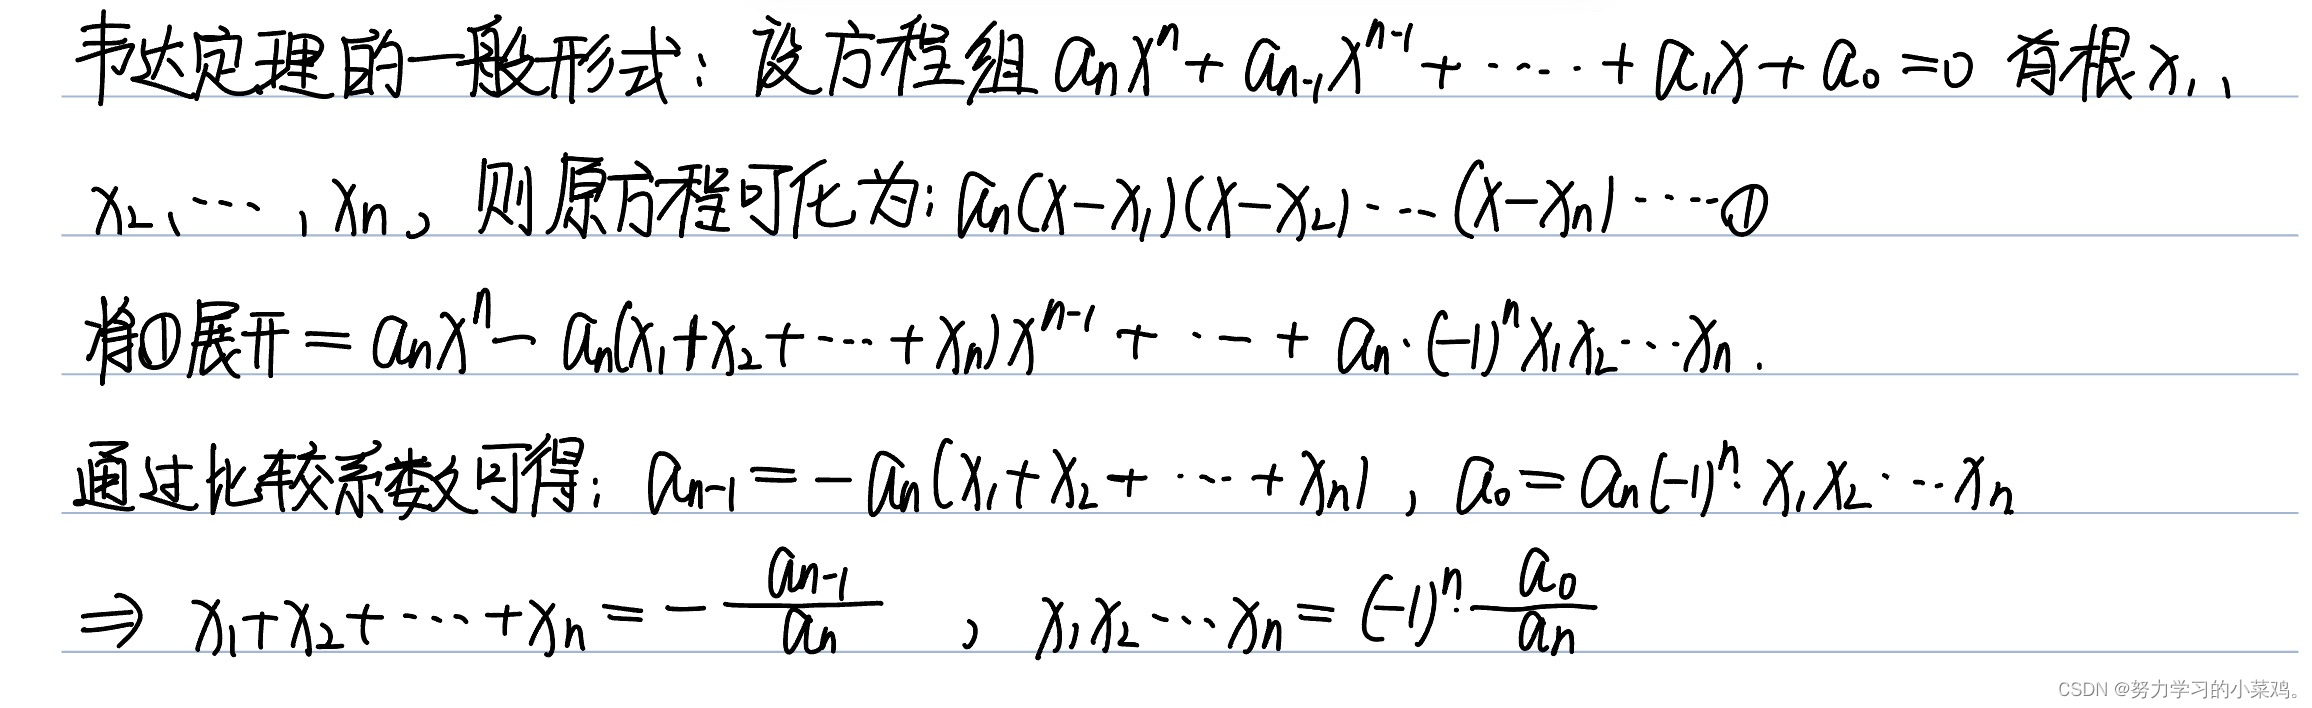 韦达定理的一般形式：设方程组 aₙxⁿ + aₙ₋₁xⁿ⁻¹ + ····· + a₁x + a₀ = 0 有根 x₁、
x₂、···、xₙ，则原方程可化为：aₙ(x-x₁)(x-x₂)····(x-xₙ)·····①
将①展开 = aₙxⁿ - aₙ(x₁+x₂+····+xₙ)xⁿ⁻¹ + ··· + aₙ·(-1)ⁿx₁x₂···xₙ.
通过比较系数可得：aₙ₋₁ = -aₙ(x₁+x₂+····+xₙ)，a₀ = aₙ(-1)ⁿ·x₁x₂···xₙ
⇒ x₁+x₂+····+xₙ = -aₙ₋₁/aₙ ，x₁x₂···xₙ = (-1)ⁿ·a₀/aₙ
CSDN @努力学习的小菜鸡。